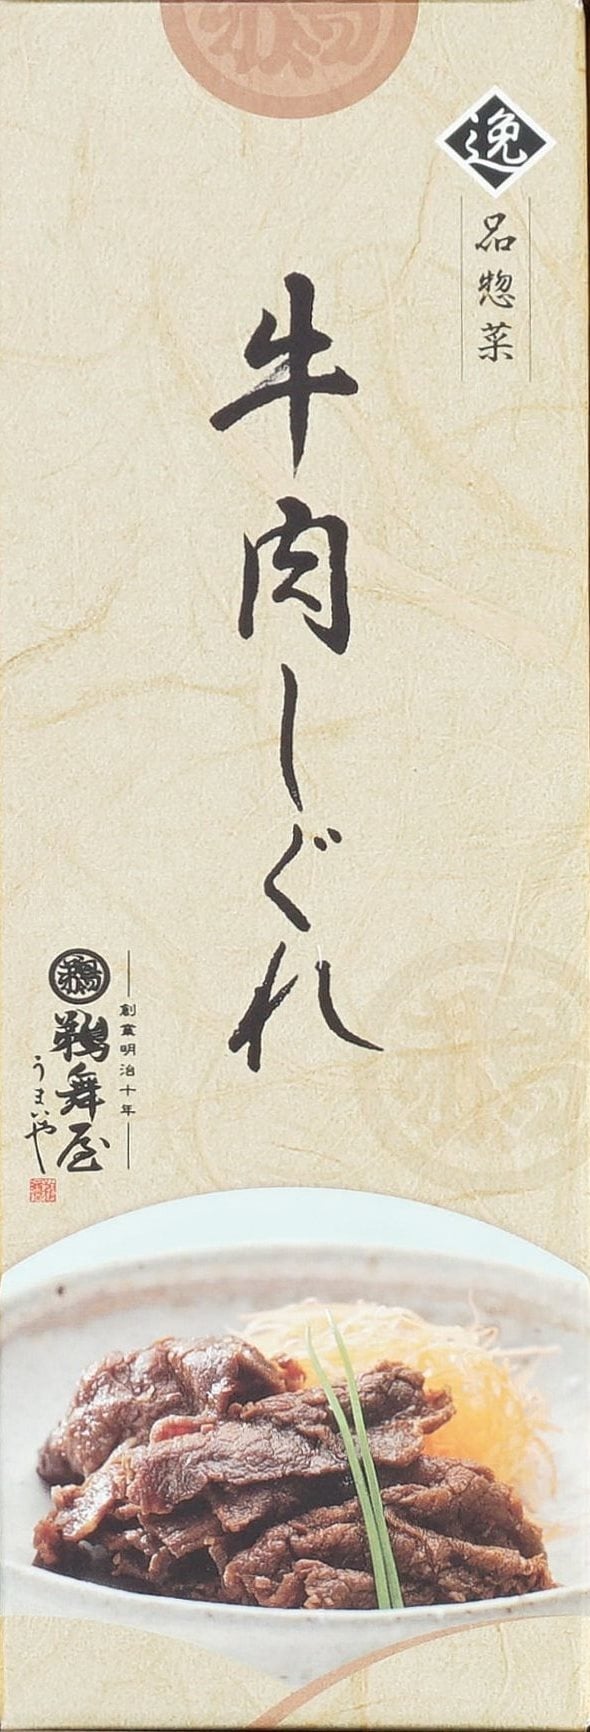 逸品惣菜
牛肉しぐれ
創業明治十年
鵜舞屋
うまいや